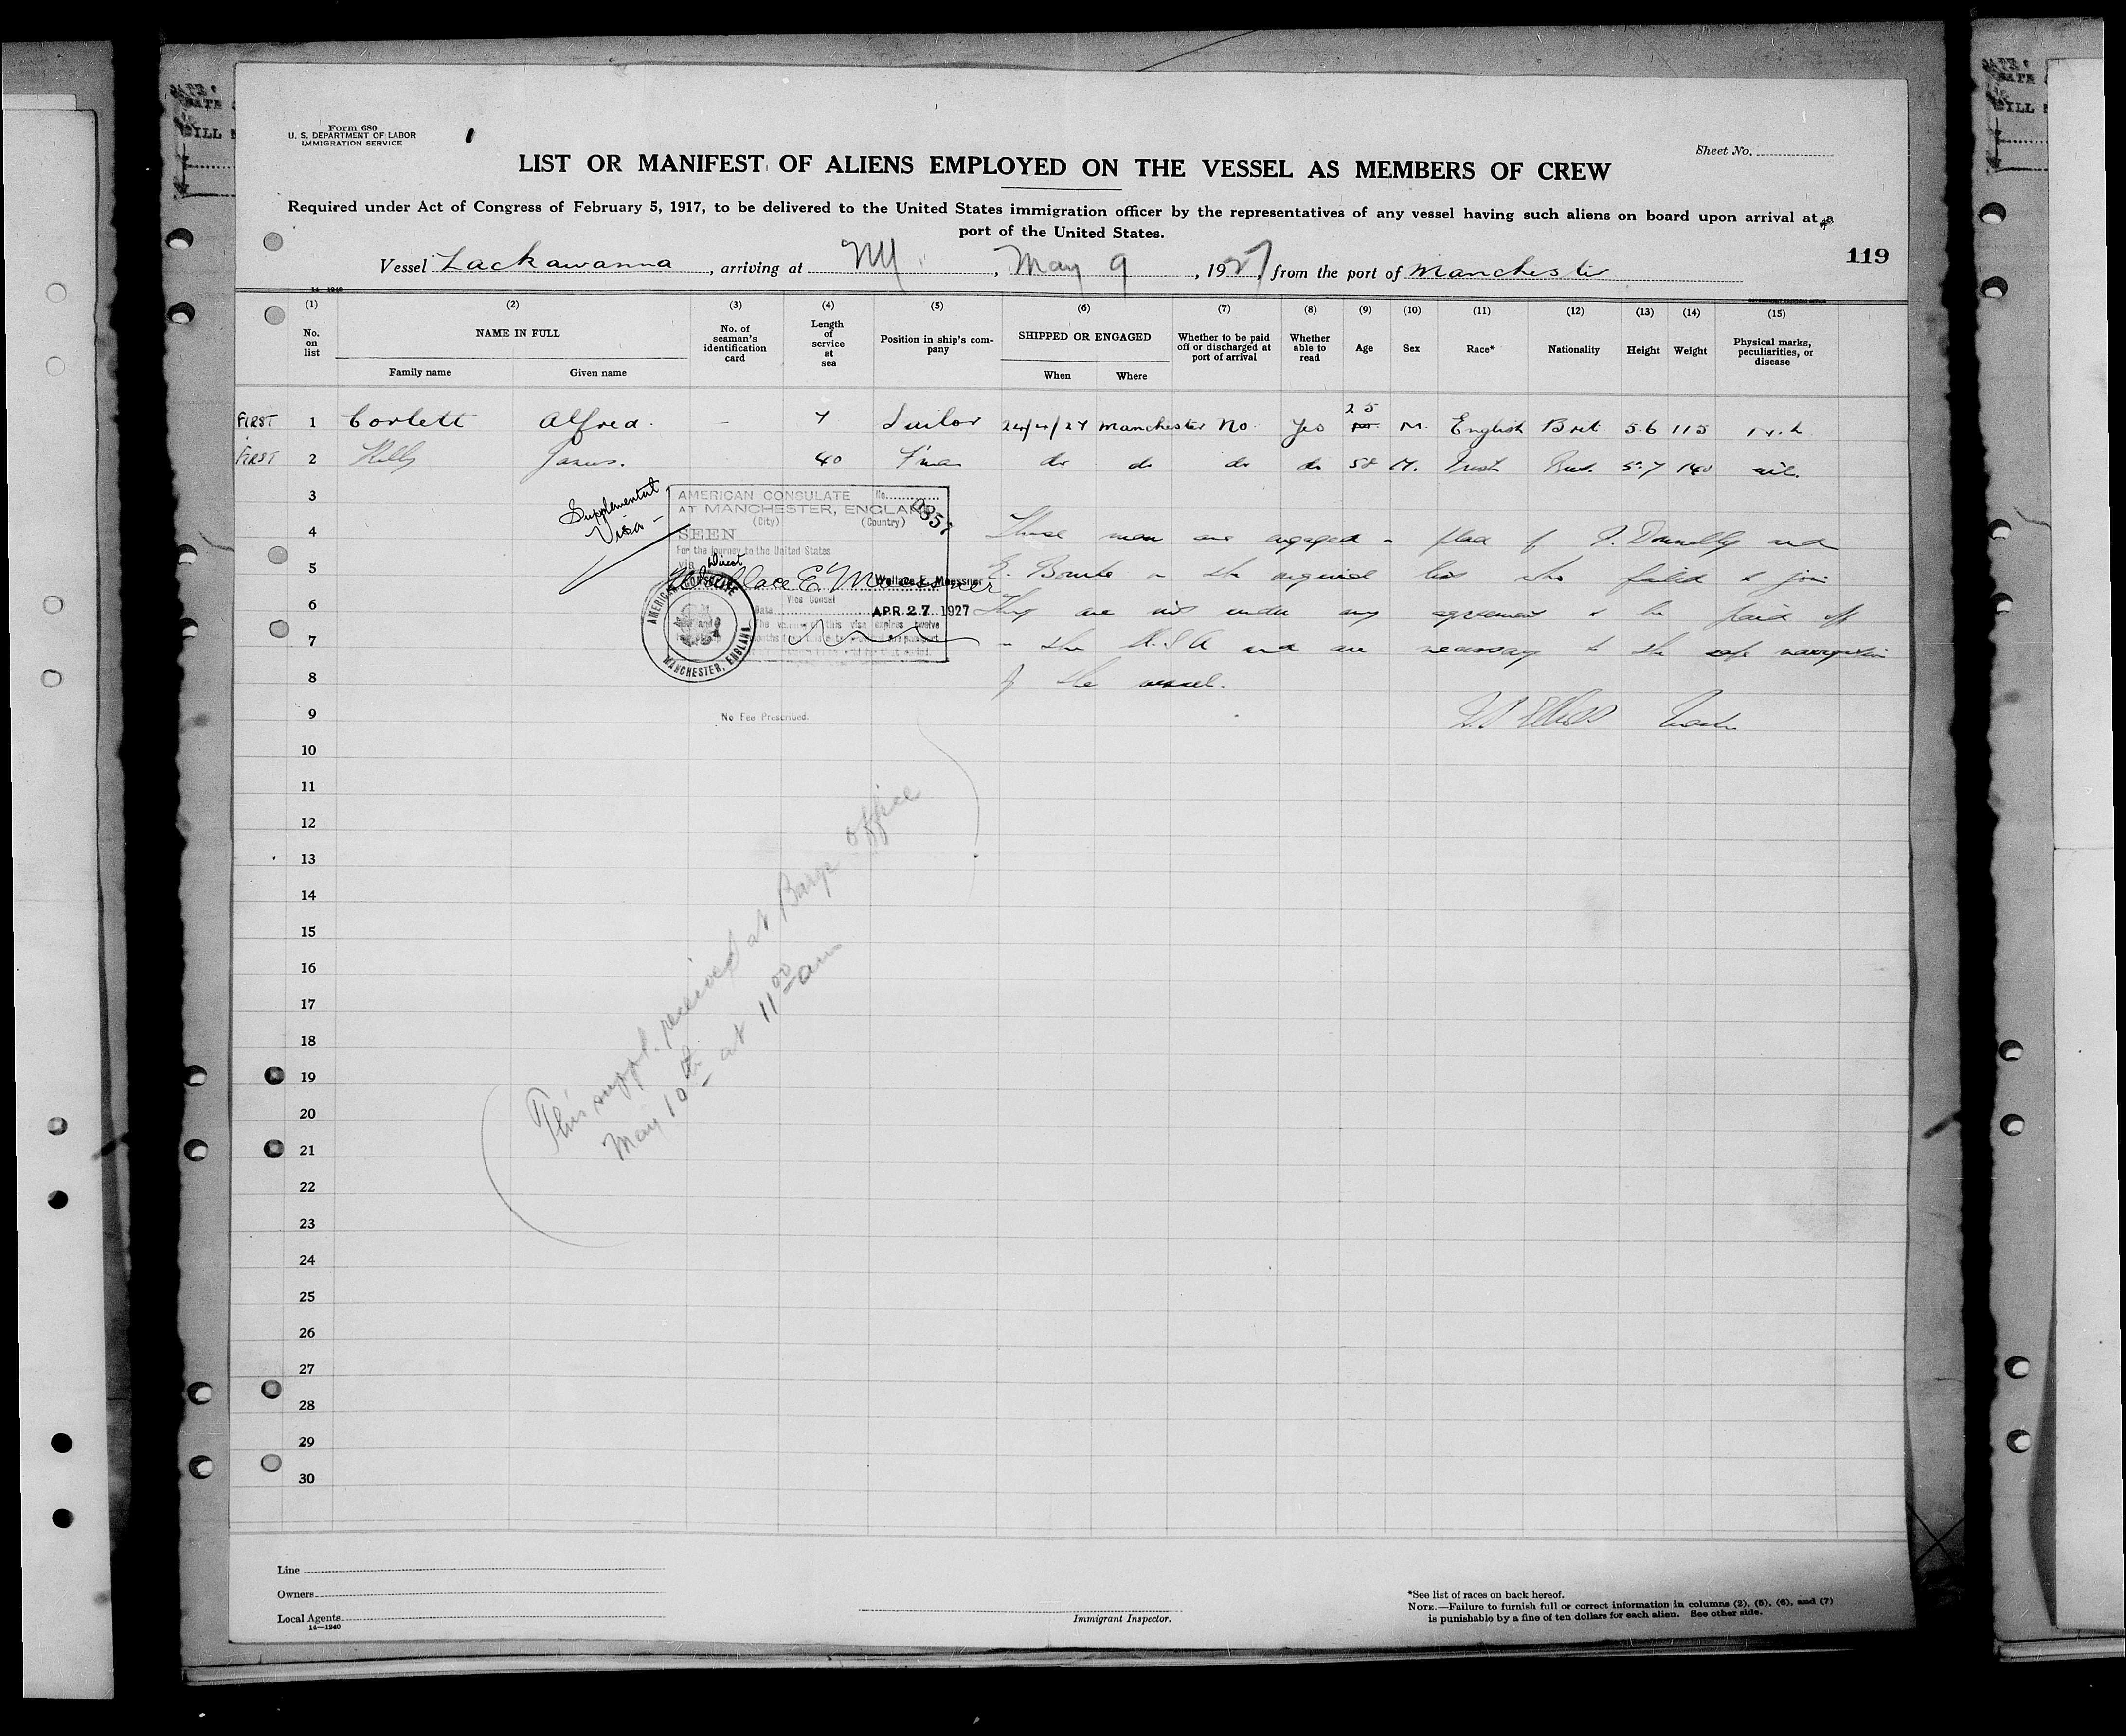 Form 680
U. S. DEPARTMENT OF LABOR
IMMIGRATION SERVICE
Sheet No.
LIST OR MANIFEST OF ALIENS EMPLOYED ON THE VESSEL AS MEMBERS OF CREW
Required under Act of Congress of February 5, 1917, to be delivered to the United States immigration officer by the representatives of any vessel having such aliens on board upon arrival at a
port of the United States.
119
Vessel Lackawanna, arriving at NY, May 9, 1927, from the port of Manchester
14-1240
(1) (2) (3) (4) (5) (6) (7) (8) (9) (10) (11) (12) (13) (14) (15)
No. on list
NAME IN FULL
Family name Given name
No. of seaman's identification card
Length of service at sea
Position in ship's company
SHIPPED OR ENGAGED
When Where
Whether to be paid off or discharged at port of arrival
Whether able to read
Age
Sex
Race*
Nationality
Height
Weight
Physical marks, peculiarities, or disease
FIRST 1 Corlett Alfred. - 7 24/4/27 Manchester No. Yes 25 M. English Brit 5.6 115
FIRST 2 Kelly James. 40 F'man do do do do 58 M. Irish 5.7 140 nil.
3
4
5
6
7
8
9
10
11
12
13
14
15
16
17
18
19
20
21
22
23
24
25
26
27
28
29
30
Supplemental
Visa
AMERICAN CONSULATE No.
AT MANCHESTER, ENGLAND
(City) (Country)
SEEN
For the journey to the United States
VIA Direct
Wallace E. Moessner
Wallace E. Moessner
Vice Consul
Date APR 27 1927
AMERICAN CONSULATE
MANCHESTER, ENGLAND
No Fee Prescribed.
These men are engaged in place of P. Donnelly and
E. Bourke on the original list who failed to join
They are not under any agreement to be paid off
in the U.S.A and are necessary to the safe navigation
of the vessel.
Master
This suppl. received at Barge Office
May 10th at 11 00 am
Line
Owners
Local Agents
14—1240
Immigrant Inspector.
*See list of races on back hereof.
NOTE.—Failure to furnish full or correct information in columns (2), (5), (6), and (7)
is punishable by a fine of ten dollars for each alien. See other side.